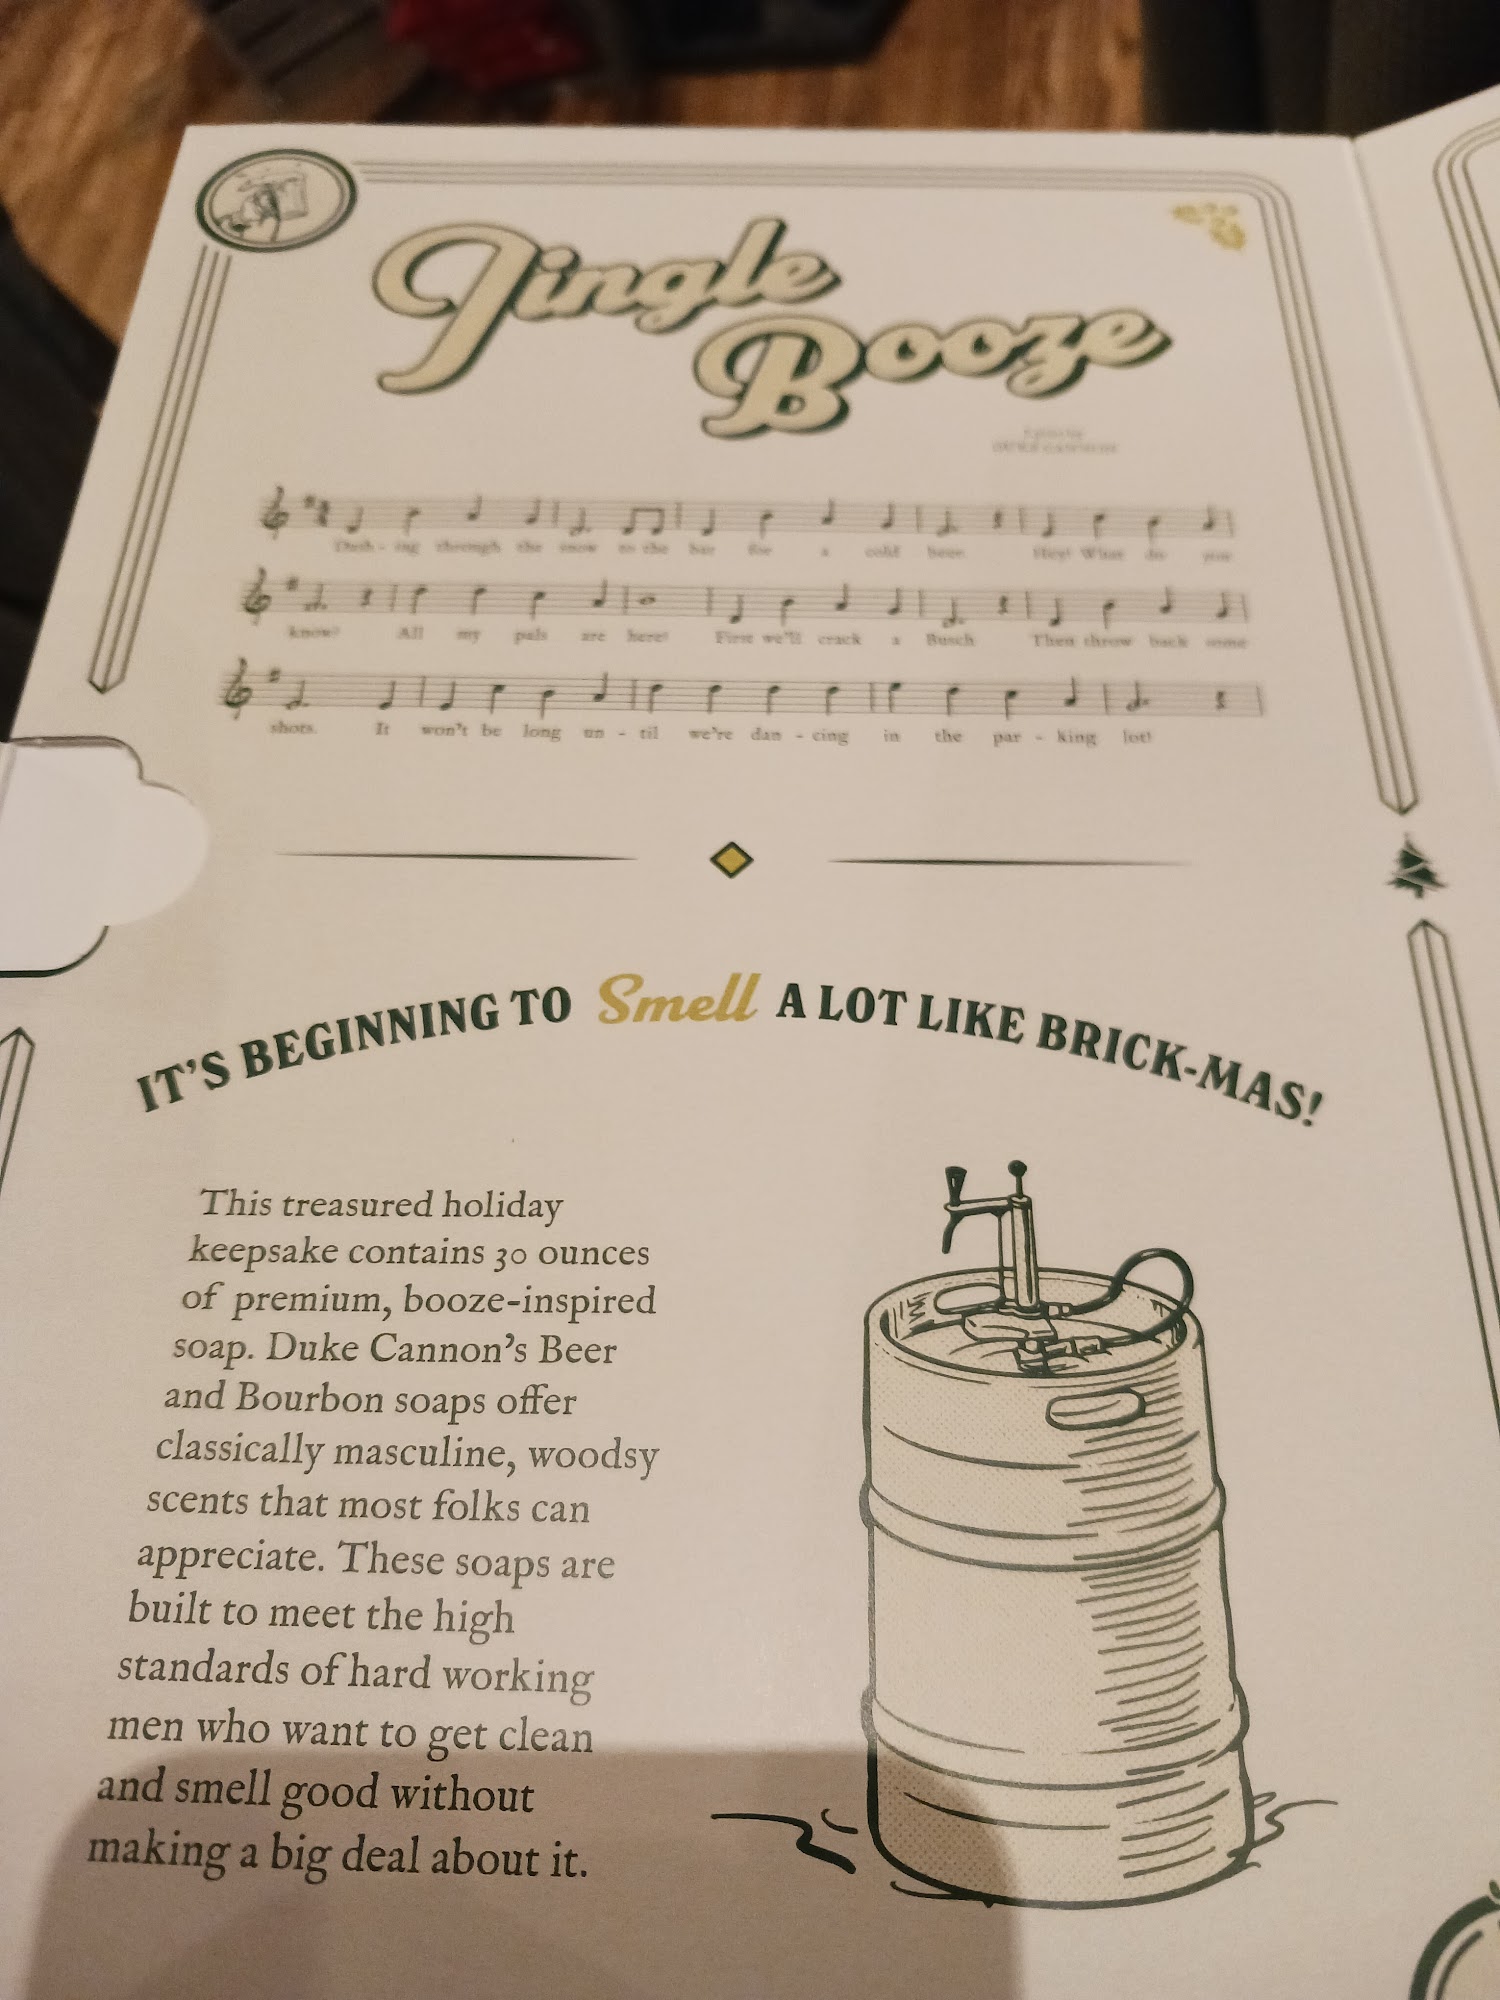 Jingle
Booze
Lyrics by
DUKE CANNON
Dash - ing through the snow to the bar for a cold beer. Hey! What do you
know? All my pals are here! First we'll crack a Busch Then throw back some
shots. It won't be long un - til we're dan - cing in the par - king lot!
IT'S BEGINNING TO Smell A LOT LIKE BRICK-MAS!
This treasured holiday
keepsake contains 30 ounces
of premium, booze-inspired
soap. Duke Cannon's Beer
and Bourbon soaps offer
classically masculine, woodsy
scents that most folks can
appreciate. These soaps are
built to meet the high
standards of hard working
men who want to get clean
and smell good without
making a big deal about it.